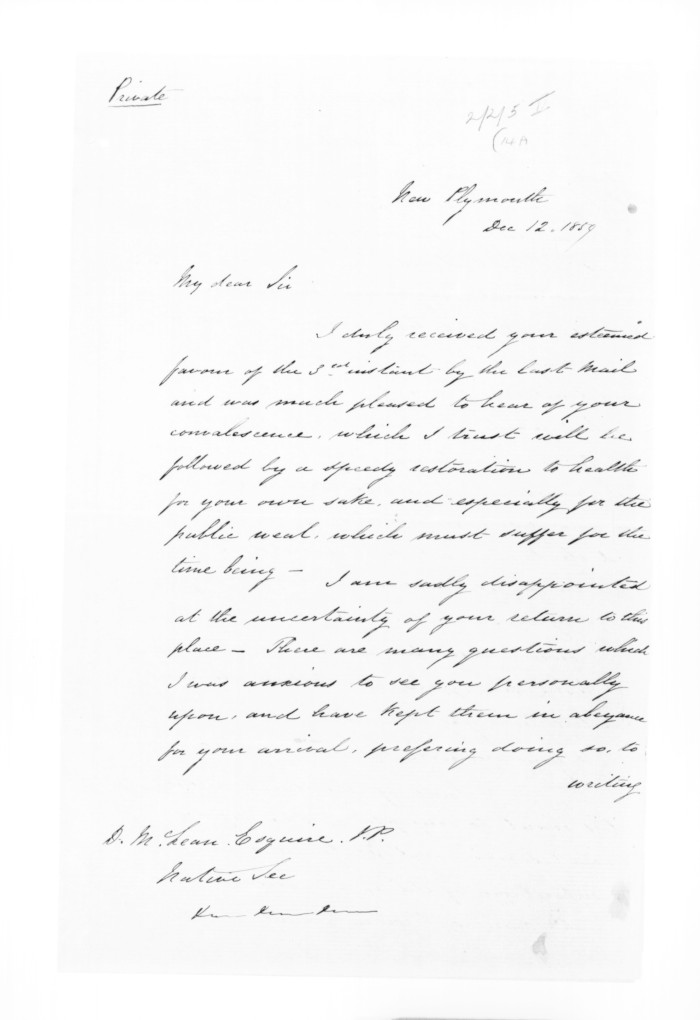 Private
2/2/5 I
(14A
New Plymouth
Dec 12. 1859
My dear Sir
I duly received your esteemed
favour of the 3rd instant by the last Mail
and was much pleased to hear of your
convalescence, which I trust will be
followed by a speedy restoration to health
for your own sake, and especially for the
public weal, which must suffer for the
time being — I am sadly disappointed
at the uncertainty of your return to this
place — There are many questions which
I was anxious to see you personally
upon, and have kept them in abeyance
for your arrival, prefering doing so, to
writing
D. McLean Esquire J.P.
Native Sec